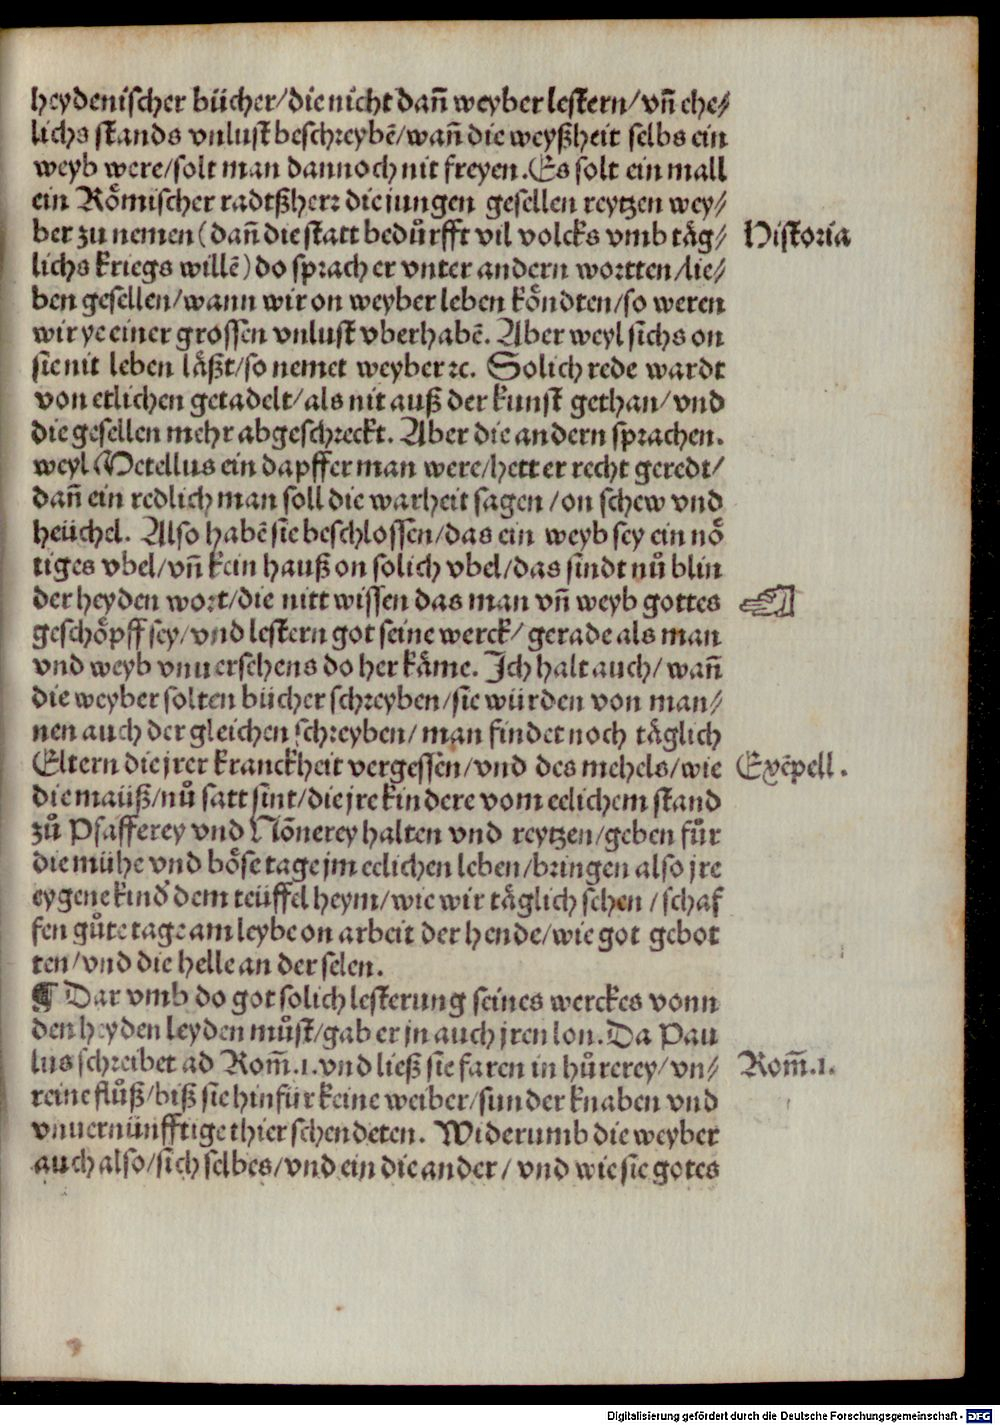 heydenischer bücher/die nicht dañ weyber lestern/vñ ehe/
lichs stands vnlust beschreybẽ/wañ die weyßheit selbs ein
weyb were/solt man dannoch nit freyen. Es solt ein mall
ein Römischer radtßherr die jungen gesellen reytzen wey/
ber zu nemen (dañ die statt bedůrfft vil volcks vmb täg/
Historia
lichs kriegs willẽ) do sprach er vnter andern wortten/lie/
ben gesellen/wann wir on weyber leben köndten/so weren
wir ye einer grossen vnlust vberhabẽ. Aber weyl sichs on
sie nit leben läßt/so nemet weyber ⁊c. Solich rede wardt
von etlichen getadelt/als nit auß der kunst gethan/vnd
die gesellen mehr abgeschreckt. Aber die andern sprachen.
weyl Metellus ein dapffer man were/hett er recht geredt/
dañ ein redlich man soll die warheit sagen/on schew vnd
heüchel. Also habẽ sie beschlossen/das ein weyb sey ein nö
tiges vbel/vñ kein hauß on solich vbel/das sindt nů blin
der heyden wort/die nitt wissen das man vñ weyb gottes
geschöpff sey/vnd lestern got seine werck/gerade als man
vnd weyb vnuersehens do her käme. Ich halt auch/wañ
die weyber solten bücher schreyben/sie würden von man/
nen auch der gleichen schreyben/man findet noch täglich
Eltern die jrer kranckheit vergessen/vnd des mehels/wie
Exẽpell.
die maüß/nů satt sint/die jre kindere vom eelichem stand
zů Pfafferey vnd Nõnerey halten vnd reytzen/geben für
die mühe vnd böse tage jm eelichen leben/bringen also jre
eygene kind dem teüffel heym/wie wir täglich sehen/schaf
fen gůte tage am leybe on arbeit der hende/wie got gebot
ten/vnd die helle an der selen.
¶ Dar vmb do got solich lesterung seines werckes vonn
den heyden leyden můst/gab er jn auch jren lon. Da Pau
lus schreibet ad Rom̃.1. vnd ließ sie faren in hůrerey/vn/
Rom̃.1.
reine flůß/biß sie hinfür keine weiber/sunder knaben vnd
vnuernünfftige thier schendeten. Widerumb die weyber
auch also/sich selbes/vnd ein die ander/vnd wie sie gotes
Digitalisierung gefördert durch die Deutsche Forschungsgemeinschaft - DFG